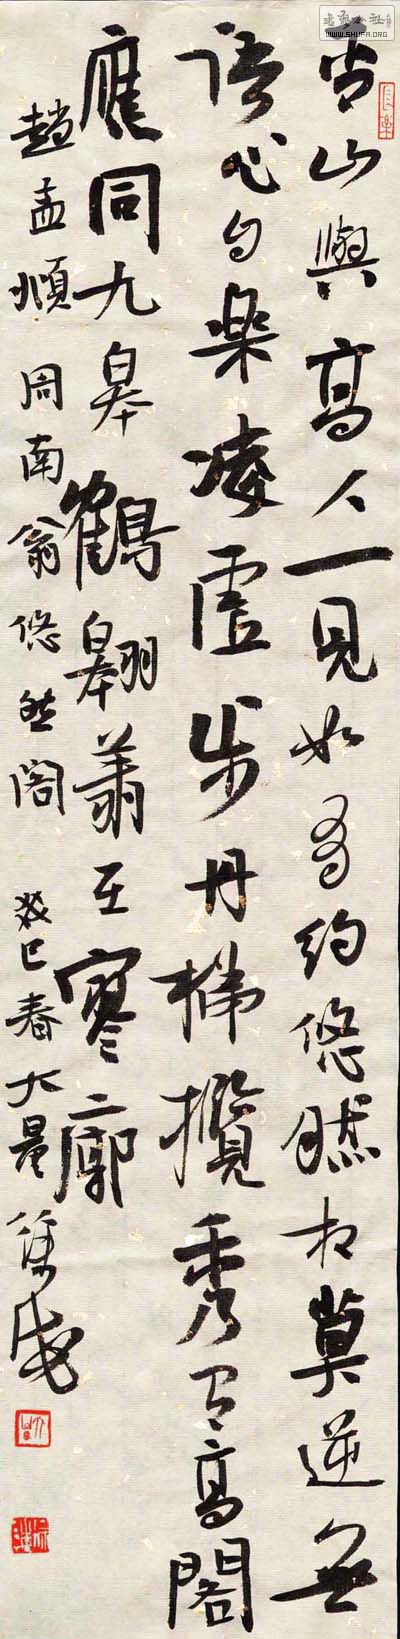 书艺公社
WWW.SHUFA.ORG
青山與高人一見如有約悠然相莫逆無
語心自樂凌虛步丹梯攬秀有高閣
應同九皋鶴翱翔寥廓
趙孟頫周南翁悠然閣 癸巳春大量